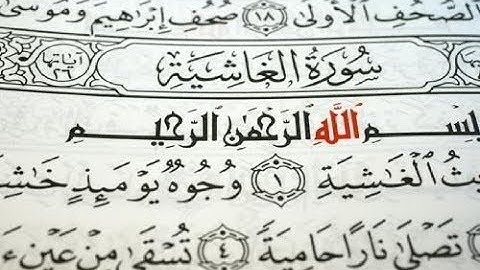 الصُّحُفِ ٱلْأُولَىٰ ١٨ صُحُفِ إِبْرَٰهِيمَ وَمُوسَىٰ
سُورَةُ الغَاشِيَةِ آيَاتُهَا ٢٦
بِسْمِ ٱللَّهِ ٱلرَّحْمَٰنِ ٱلرَّحِيمِ
ٱلْغَٰشِيَةِ ١ وُجُوهٌ يَوْمَئِذٍ
تَصْلَىٰ نَارًا حَامِيَةً ٤ تُسْقَىٰ مِنْ عَيْنٍ